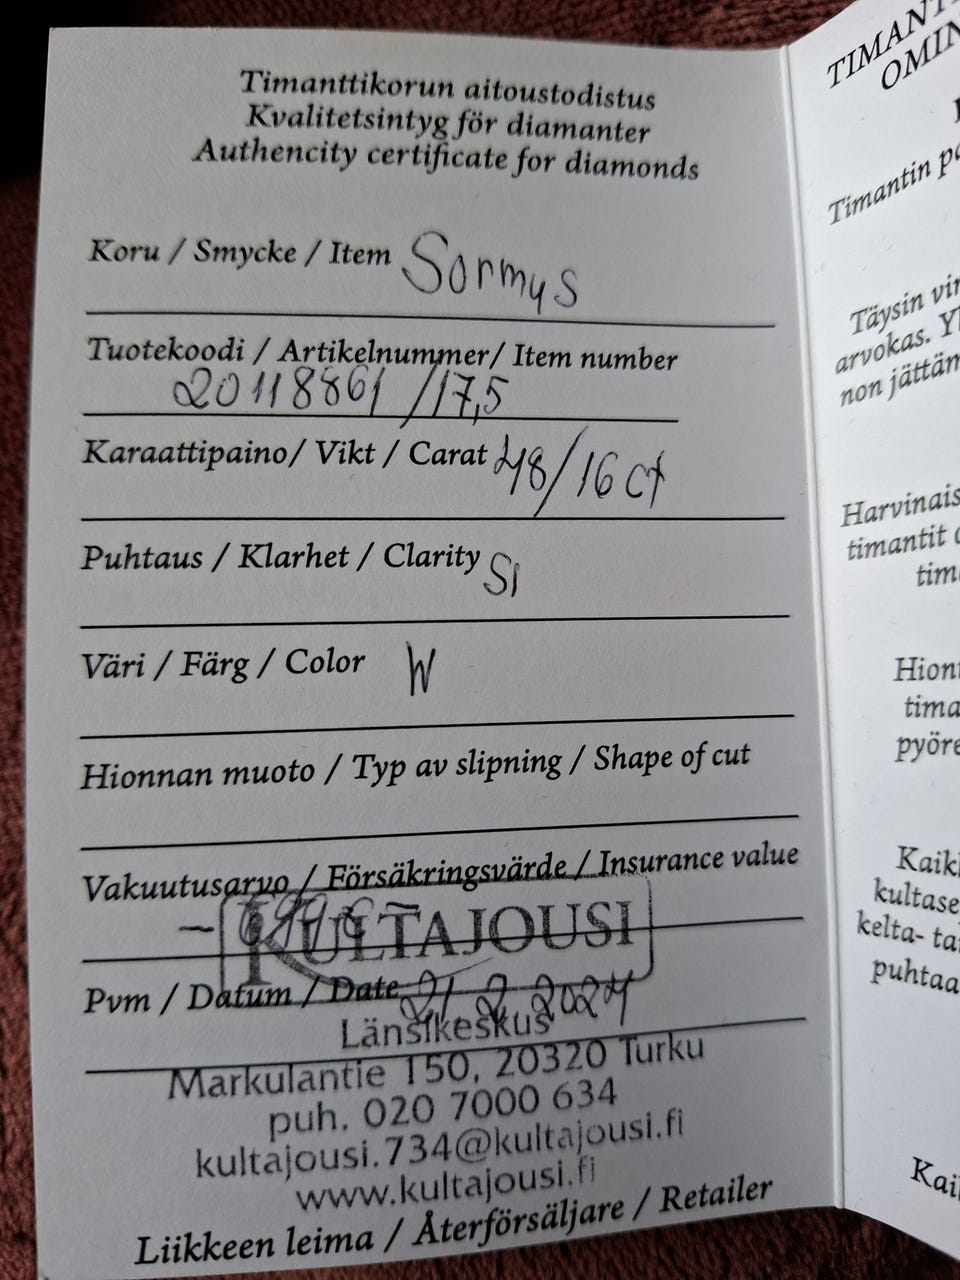 Timanttikorun aitoustodistus
Kvalitetsintyg för diamanter
Authencity certificate for diamonds
Koru / Smycke / Item Sormus
Tuotekoodi / Artikelnummer/ Item number
20118861 /17,5
Karaattipaino/ Vikt / Carat 48/16 ct
Puhtaus / Klarhet / Clarity SI
Väri / Färg / Color W
Hionnan muoto / Typ av slipning / Shape of cut
Vakuutusarvo / Försäkringsvärde / Insurance value
KULTAJOUSI
Pvm / Datum / Date 21 2 2024
Länsikeskus
Markulantie 150, 20320 Turku
puh. 020 7000 634
kultajousi.734@kultajousi.fi
www.kultajousi.fi
Liikkeen leima / Återförsäljare / Retailer
TIMANT
OMIN
Timantin
Täysin
arvokas.
non
Harvinais
timantit
tim
Hion
tima
pyöre
Kaik
kultase
kelta- ta
puhtaa
Kai